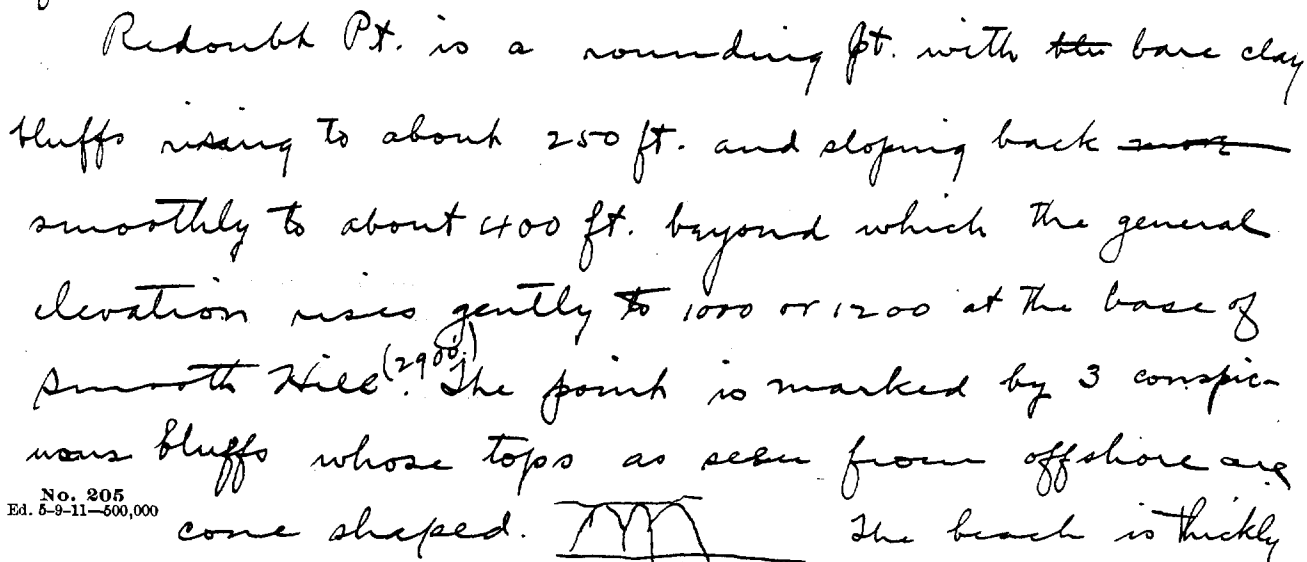 Redoubt Pt. is a rounding pt. with blu bare clay
bluffs rising to about 250 ft. and sloping back more
smoothly to about 400 ft. beyond which the general
elevation rises gently to 1000 or 1200 at the base of
Smooth Hill (2900'). The point is marked by 3 conspic-
uous bluffs whose tops as seen from offshore are
No. 205
Ed. 5-9-11—500,000
cone shaped. The beach is thickly